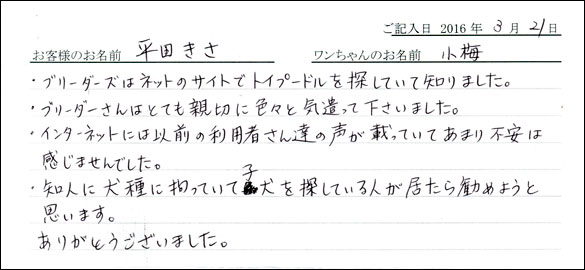 ご記入日 2016 年 3 月 21 日
お客様のお名前 平田きさ ワンちゃんのお名前 小梅
・ブリーダーズはネットのサイトでトイプードルを探していて知りました。
・ブリーダーさんはとても親切に色々と気遣って下さいました。
・インターネットには以前の利用者さん達の声が載っていてあまり不安は
感じませんでした。
・知人に犬種に拘っていて子犬を探している人が居たら勧めようと
思います。
ありがとうございました。